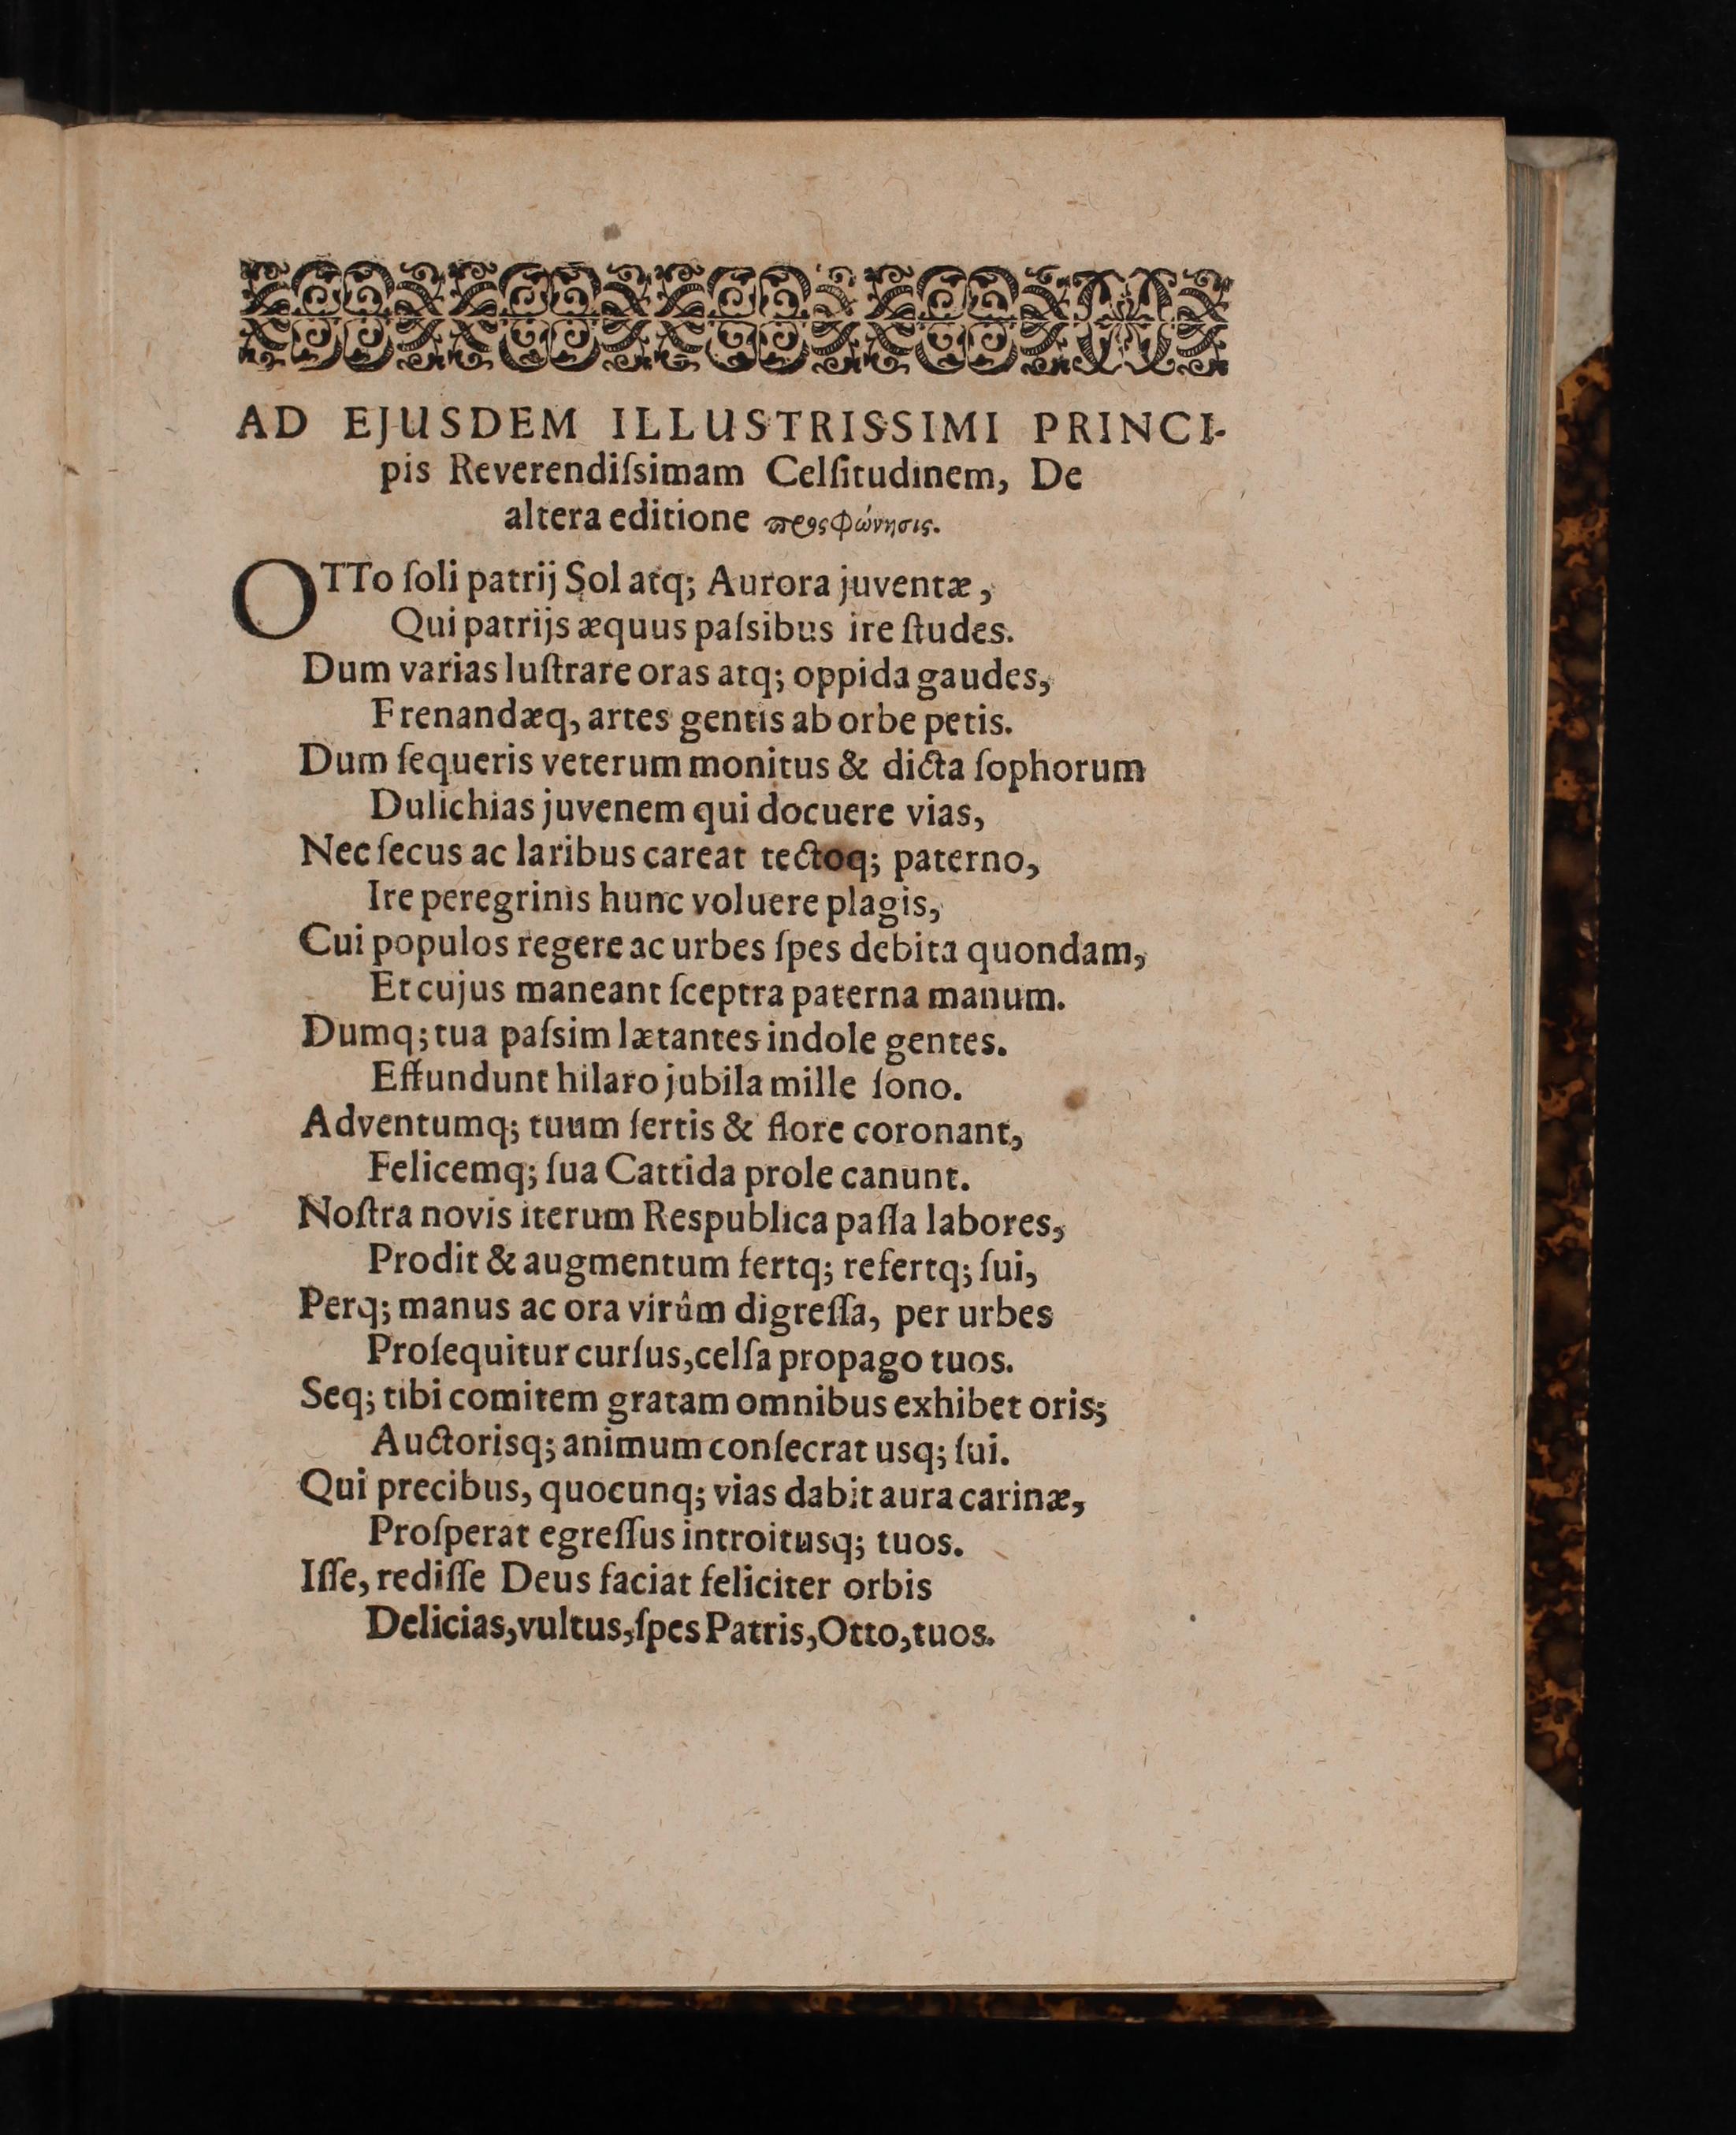 AD EJUSDEM ILLUSTRISSIMI PRINCI-
pis Reverendiſsimam Celſitudinem, De
altera editione προςφώνησις.
OTTo ſoli patrij Sol atq; Aurora juventæ,
Qui patrijs æquus paſsibus ire ſtudes.
Dum varias luſtrare oras atq; oppida gaudes,
Frenandæq, artes gentis ab orbe petis.
Dum ſequeris veterum monitus & dicta ſophorum
Dulichias juvenem qui docuere vias,
Nec ſecus ac laribus careat tectoq; paterno,
Ire peregrinis hunc voluere plagis,
Cui populos regere ac urbes ſpes debita quondam,
Et cujus maneant ſceptra paterna manum.
Dumq; tua paſsim lætantes indole gentes.
Effundunt hilaro jubila mille ſono.
Adventumq; tuum ſertis & flore coronant,
Felicemq; ſua Cattida prole canunt.
Noſtra novis iterum Respublica paſſa labores,
Prodit & augmentum fertq; refertq; ſui,
Perq; manus ac ora virûm digreſſa, per urbes
Proſequitur curſus, celſa propago tuos.
Seq; tibi comitem gratam omnibus exhibet oris;
Auctorisq; animum conſecrat usq; ſui.
Qui precibus, quocunq; vias dabit aura carinæ,
Proſperat egreſſus introitusq; tuos.
Iſſe, rediſſe Deus faciat feliciter orbis
Delicias, vultus, ſpes Patris, Otto, tuos.